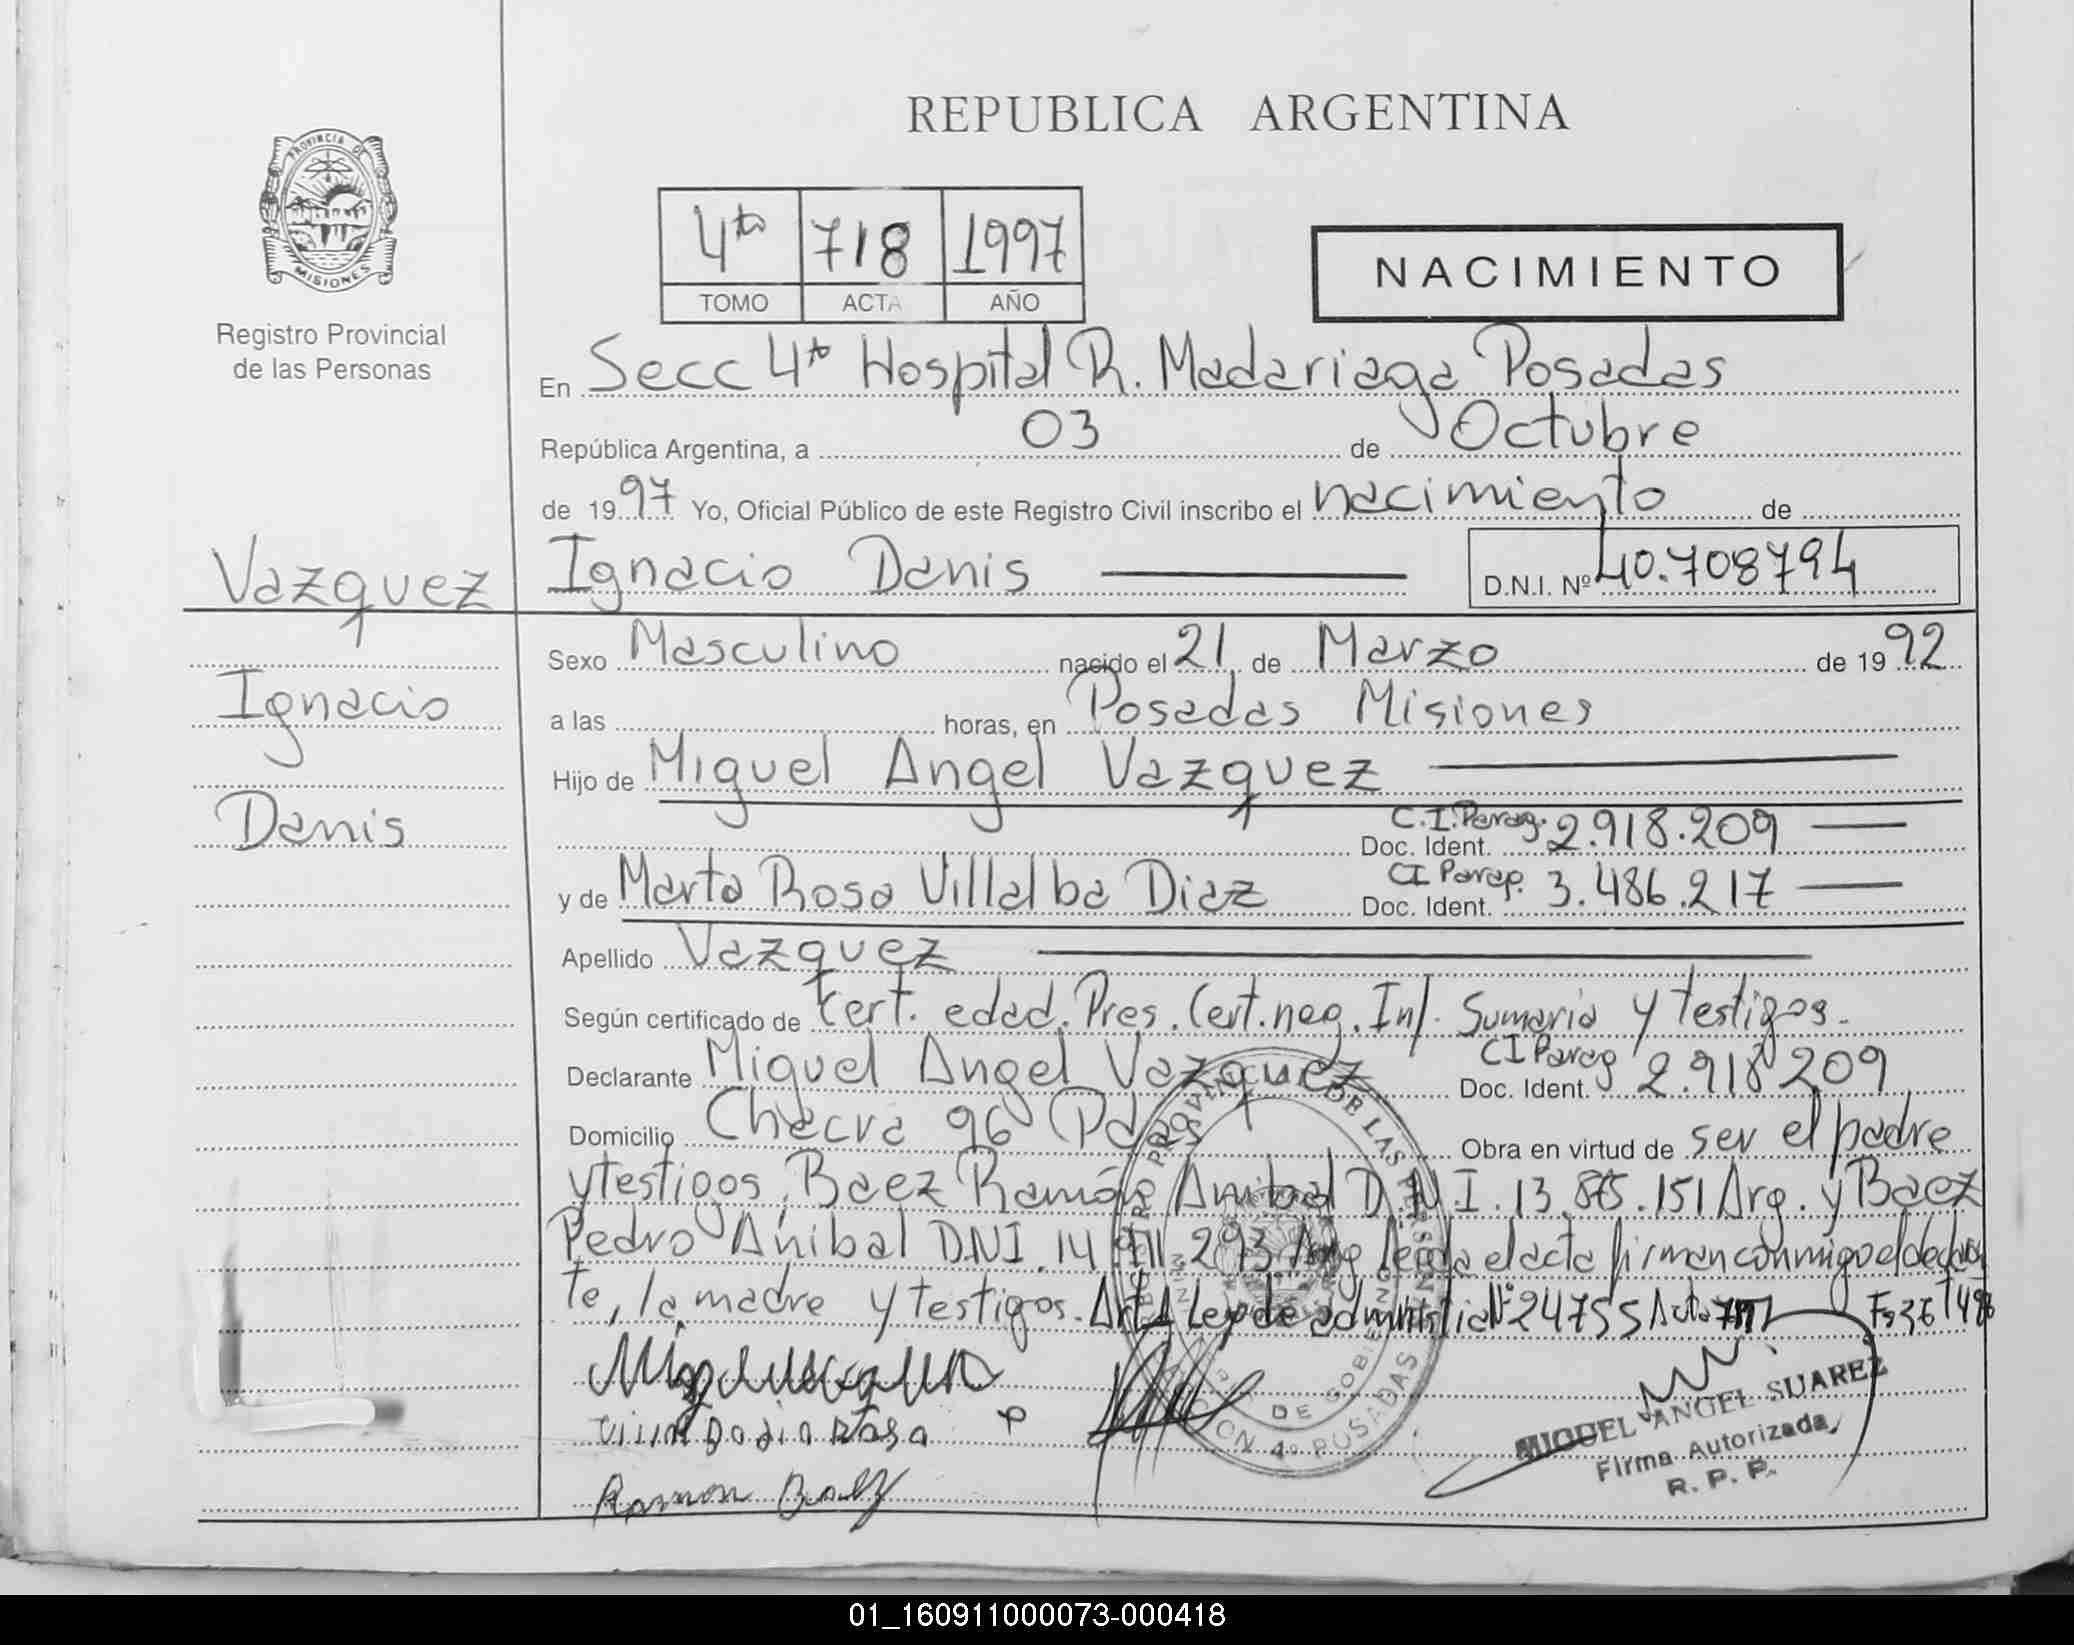 REPUBLICA ARGENTINA
PROVINCIA DE
MISIONES
Registro Provincial
de las Personas
4to 718 1997
TOMO ACTA AÑO
NACIMIENTO
En Secc 4ta Hospital R. Madariaga Posadas
República Argentina, a 03 de Octubre
de 1997 Yo, Oficial Público de este Registro Civil inscribo el nacimiento de
Vazquez Ignacio Danis D.N.I. Nº 40.708794
Sexo Masculino nacido el 21 de Marzo de 1992
Ignacio
a las horas, en Posadas Misiones
Hijo de Miguel Angel Vazquez
Danis
C.I. Parag. Doc. Ident. 2.918.209
y de Marta Rosa Villalba Diaz CI Parag. Doc. Ident. 3.486.217
Apellido Vazquez
Según certificado de Cert. edad. Pres. Cert. neg. Inf. Sumaria y testigos.
Declarante Miguel Angel Vazquez CI Parag Doc. Ident. 2.918209
Domicilio Chacra 96 Pdas Obra en virtud de ser el padre
y testigos. Baez Ramón Anibal D.N.I. 13.875.151 Arg. y Baez
Pedro Anibal D.N.I. 14 293 Arg leida el acta firman conmigo el
te, la madre y testigos. Art 1 Ley de N° 24755
Ramon Baez
MIGUEL ANGEL SUAREZ
Firma Autorizada
R. P. P.
01_160911000073-000418